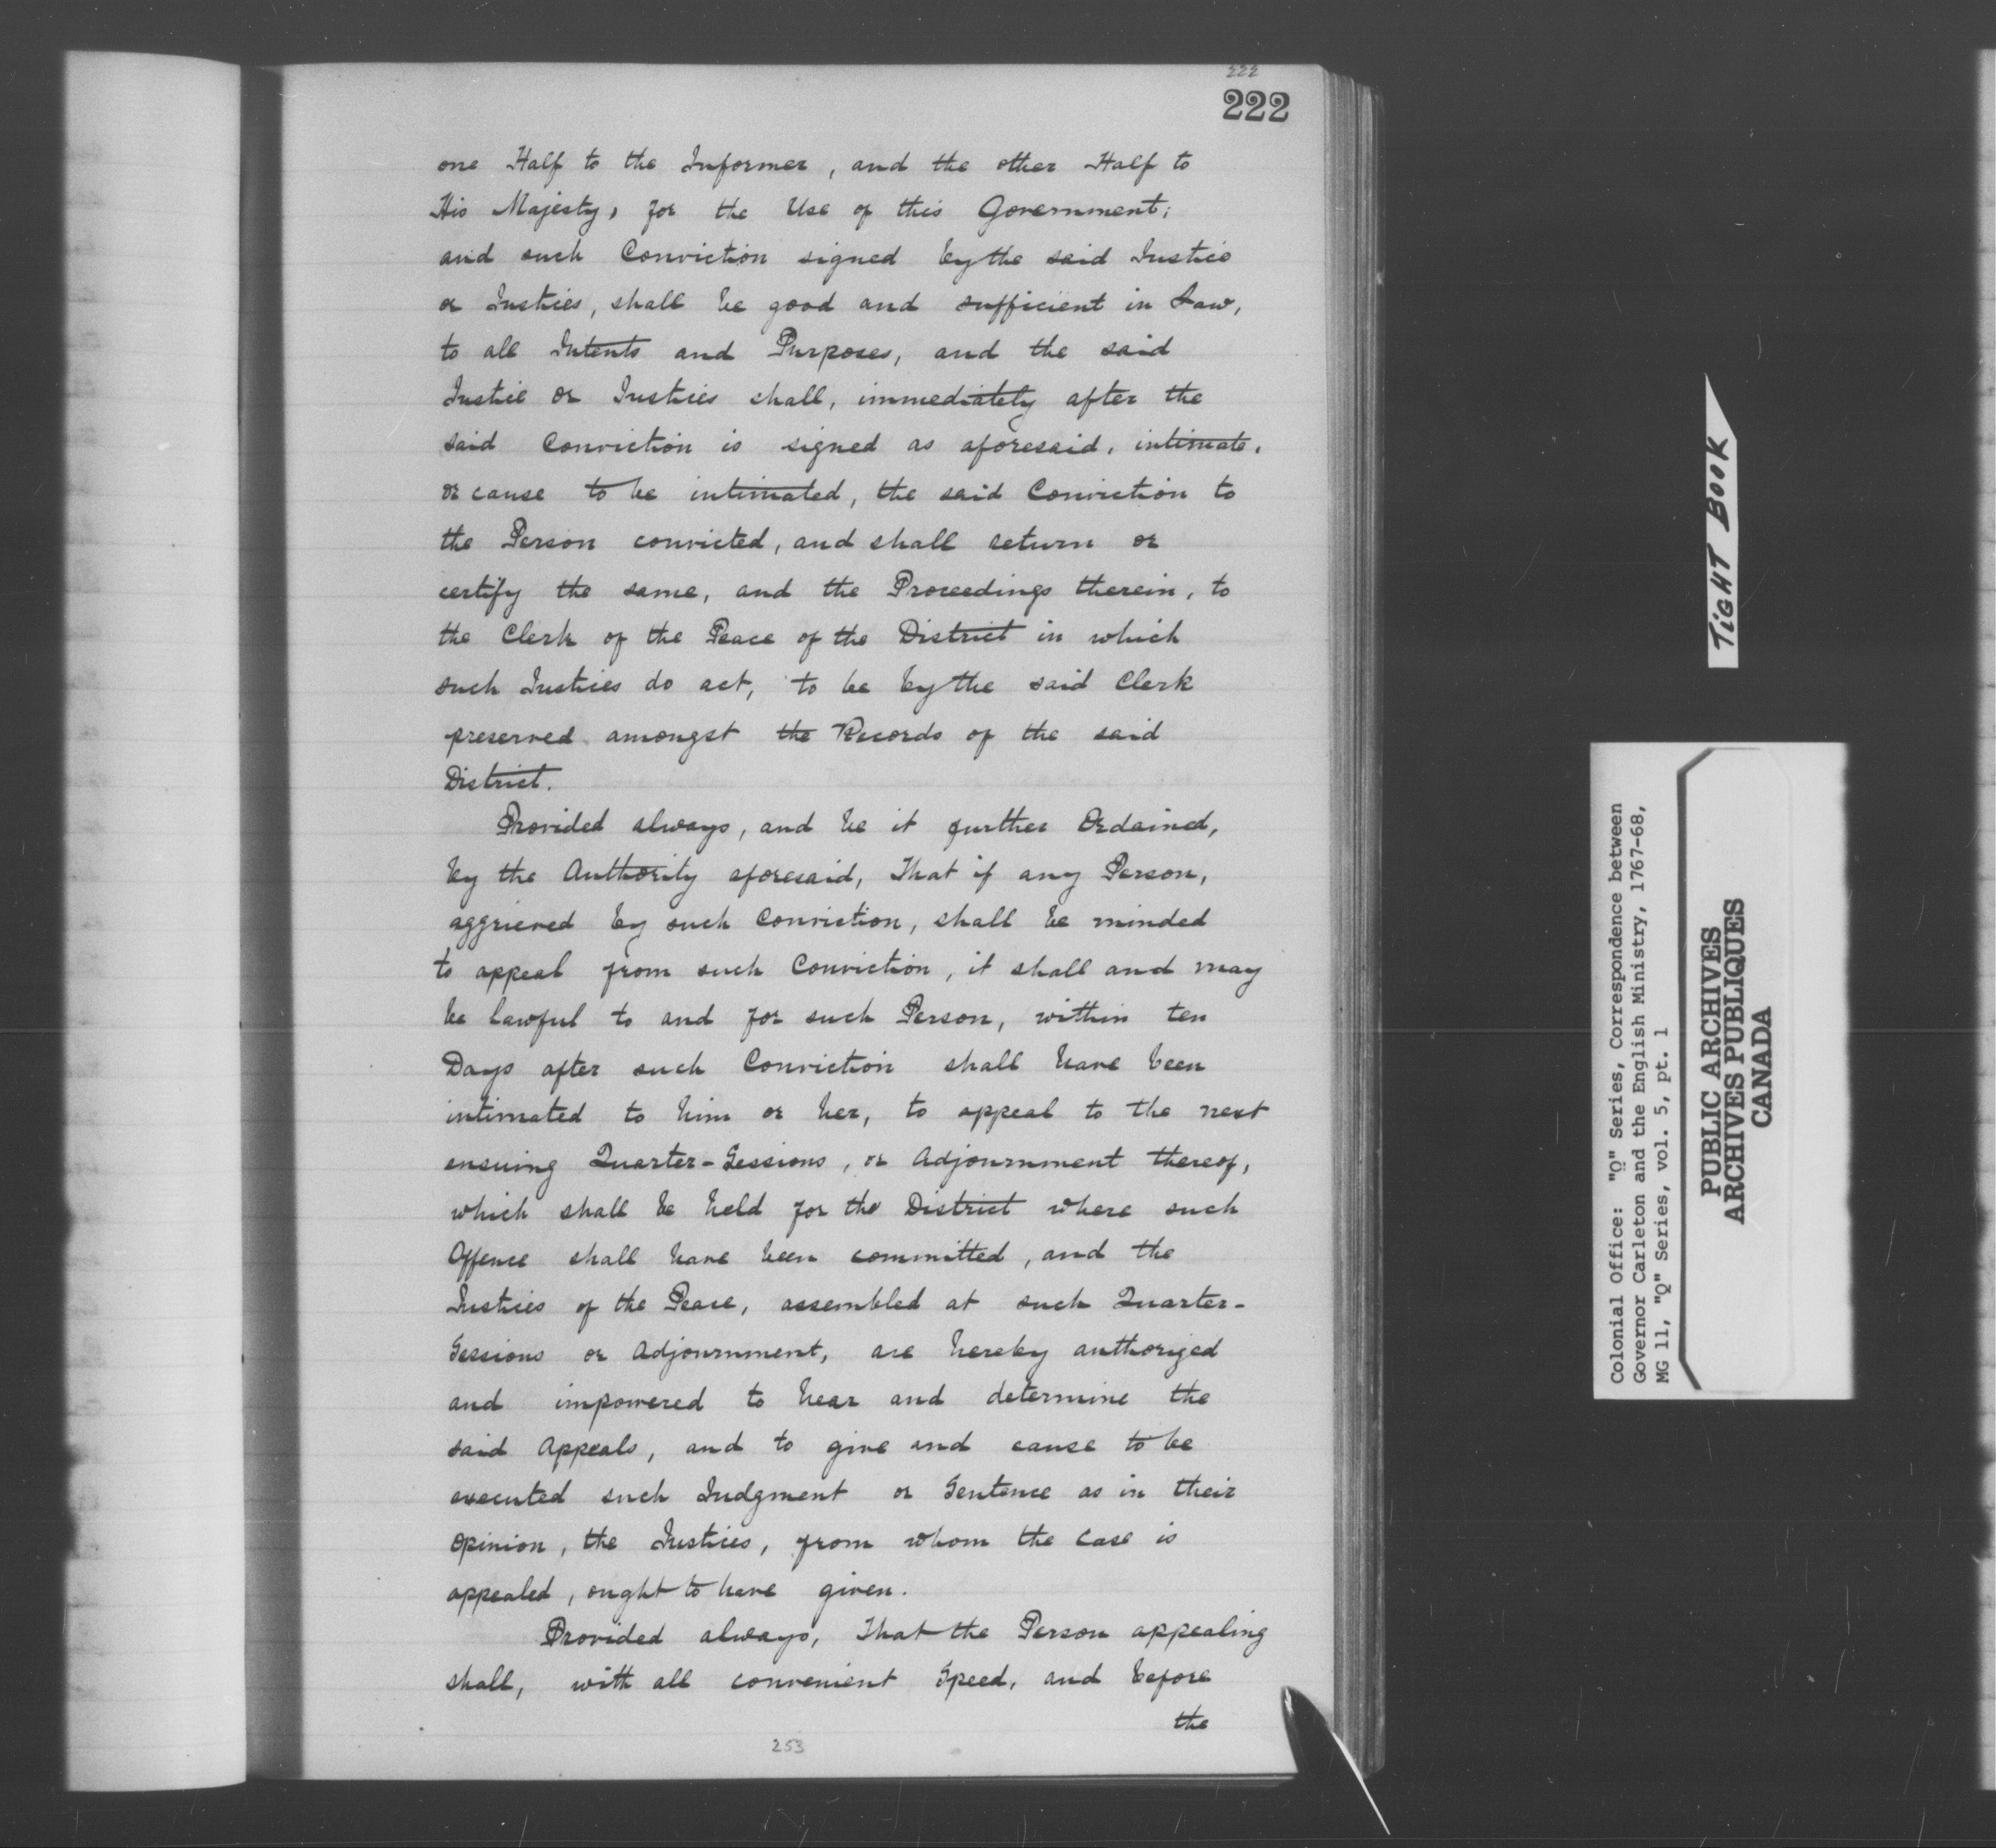 222
222
one Half to the Informer, and the other Half to
His Majesty, for the Use of this Government;
and such Conviction signed by the said Justice
or Justices, shall be good and sufficient in Law,
to all Intents and Purposes, and the said
Justice or Justices shall, immediately after the
said Conviction is signed as aforesaid, intimate,
or cause to be intimated, the said Conviction to
the Person convicted, and shall return or
certify the same, and the Proceedings therein, to
the Clerk of the Peace of the District in which
such Justices do act, to be by the said Clerk
preserved amongst the Records of the said
District.
Provided always, and be it further Ordained,
by the Authority aforesaid, That if any Person,
aggrieved by such Conviction, shall be minded
to appeal from such Conviction, it shall and may
be lawful to and for such Person, within ten
Days after such Conviction shall have been
intimated to him or her, to appeal to the next
ensuing Quarter-Sessions, or Adjournment thereof,
which shall be held for the District where such
Offence shall have been committed, and the
Justices of the Peace, assembled at such Quarter-
Sessions or Adjournment, are hereby authorized
and impowered to hear and determine the
said Appeals, and to give and cause to be
executed such Judgment or Sentence as in their
Opinion, the Justices, from whom the Case is
appealed, ought to have given.
Provided always, That the Person appealing
shall, with all convenient Speed, and before
the
253
TIGHT BOOK
Colonial Office: "Q" Series, Correspondence between
Governor Carleton and the English Ministry, 1767-68,
MG 11, "Q" Series, vol. 5, pt. 1
PUBLIC ARCHIVES
ARCHIVES PUBLIQUES
CANADA